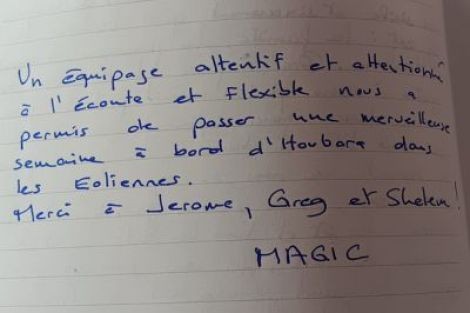 Un équipage attentif et attentionné
à l'écoute et flexible nous a
permis de passer une merveilleuse
semaine à bord d'Houbara dans
les Eoliennes.
Merci à Jerome, Greg et Shelem!
MAGIC